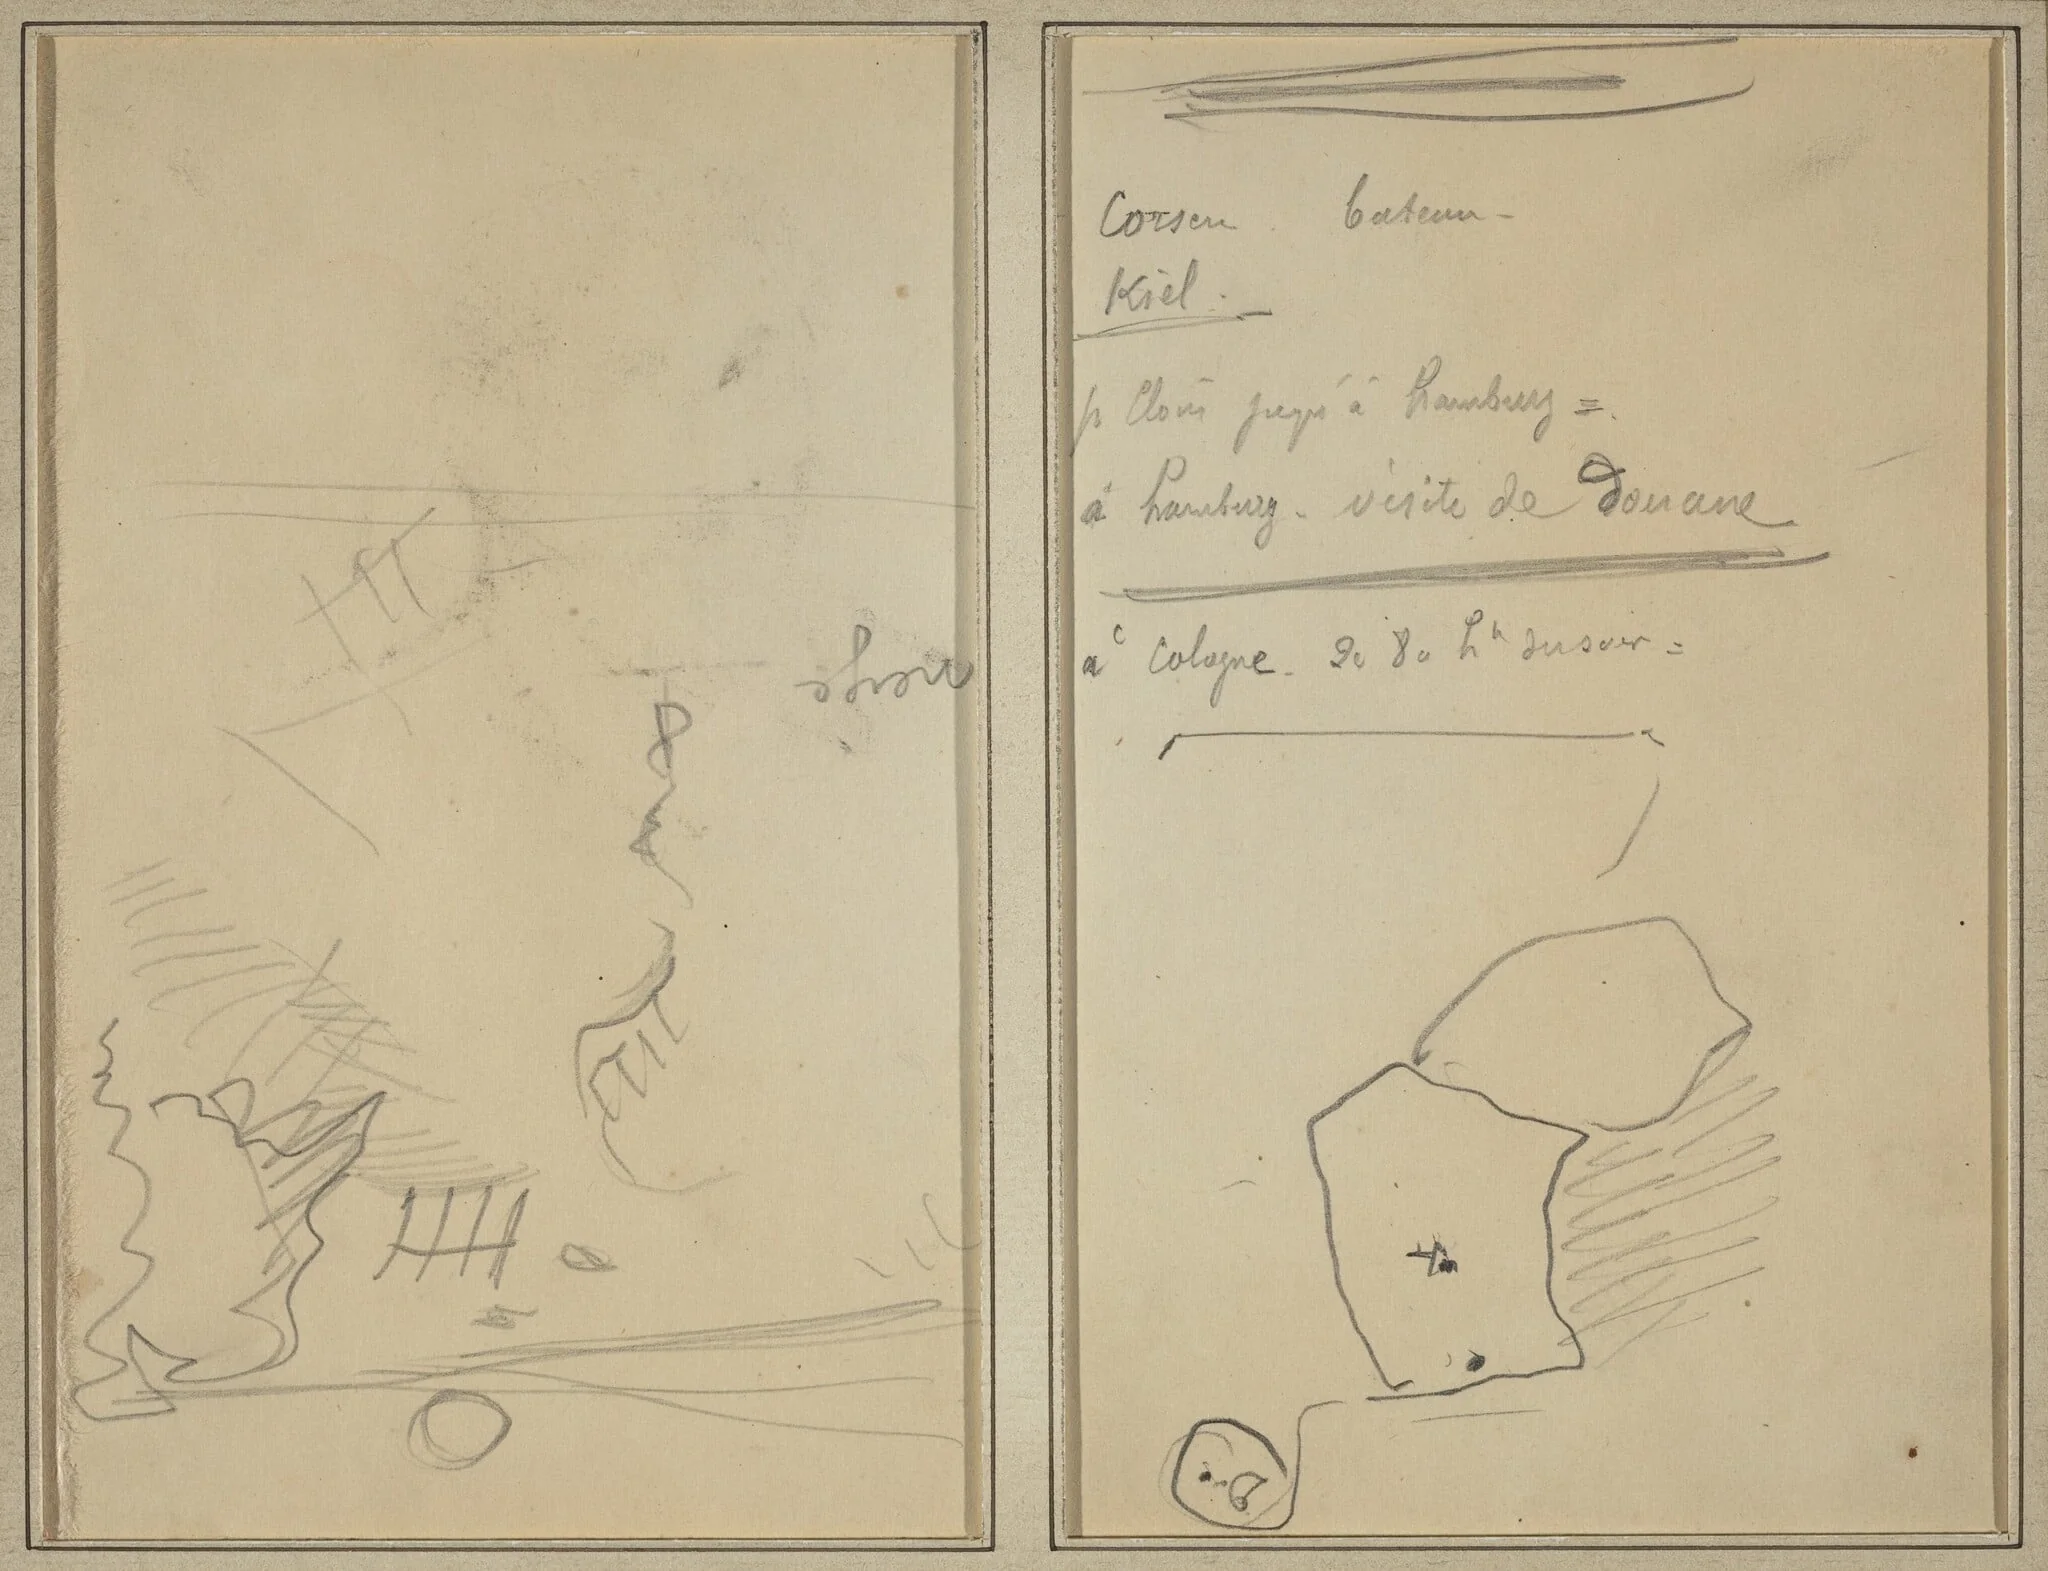 neige
Corseu bateau -
Kiel.
p Cloir jusqu'à hamburg =.
à hamburg - visite de Douane
à Cologne - 20 80 h du soir =